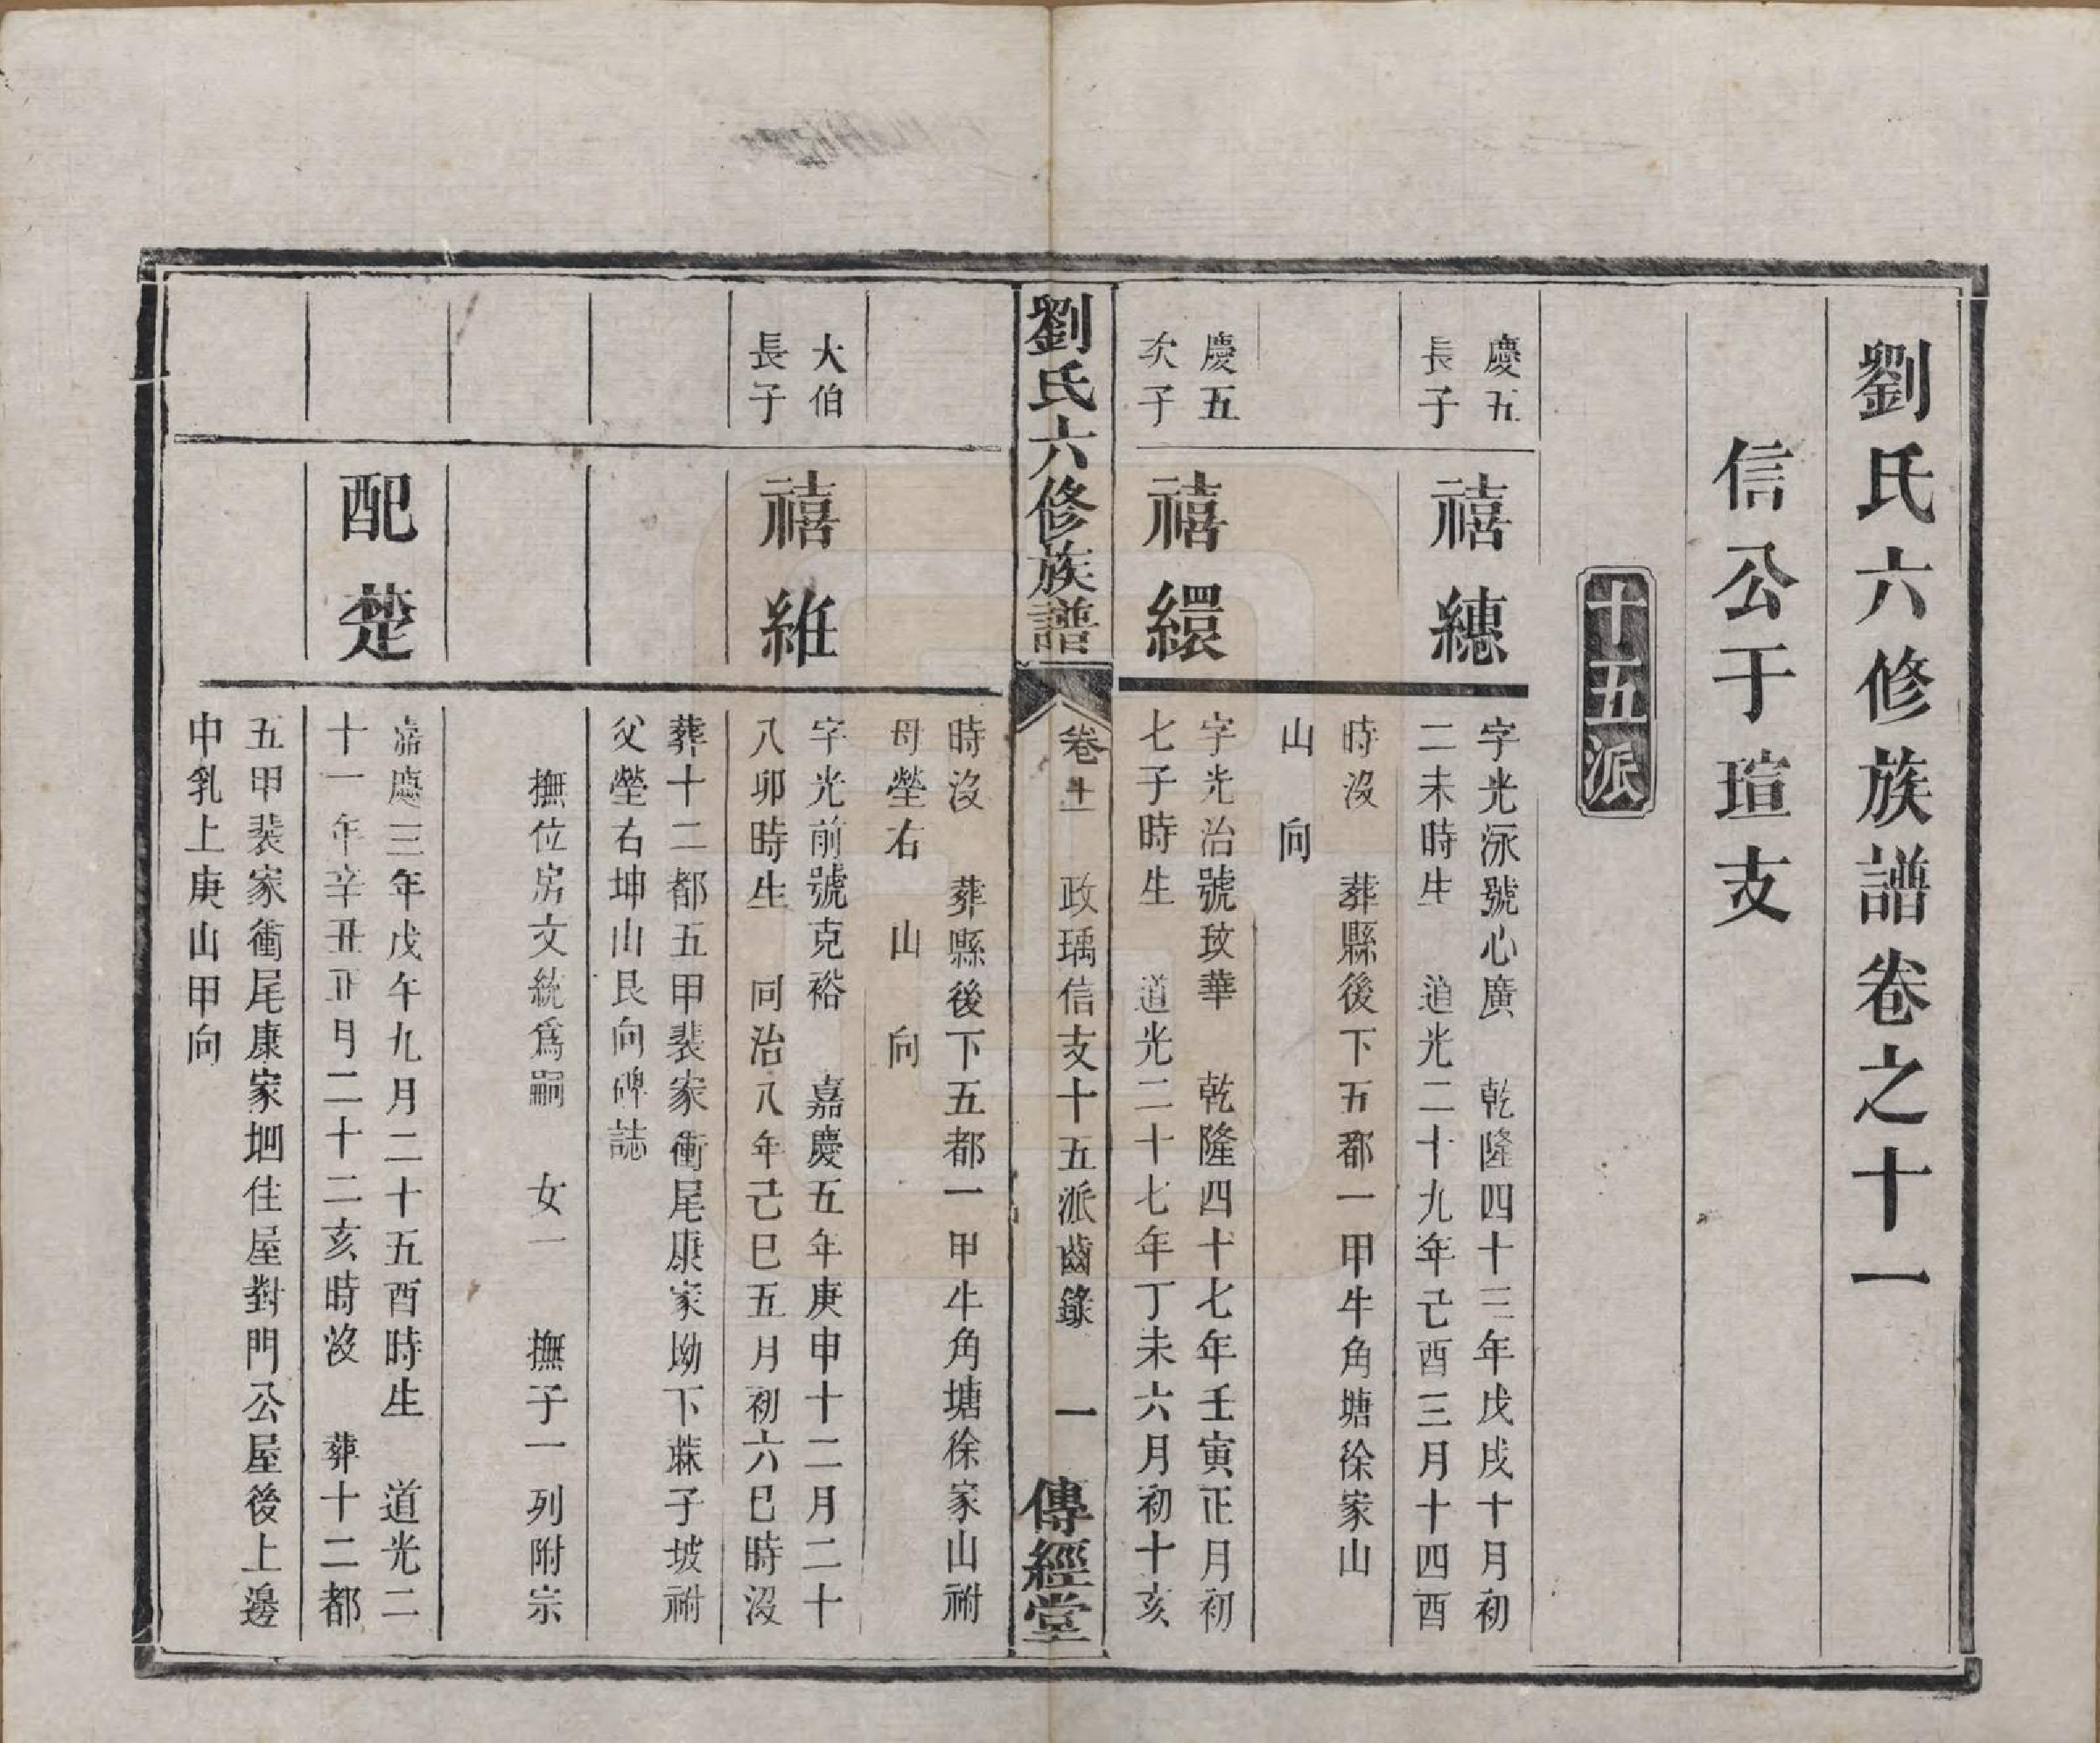 劉氏六修族譜卷之十一
信公于瑄支
十五派
慶五
長子
禧繐
字光泳號心廣　乾隆四十三年戊戌十月初
二未時生　道光二十九年己酉三月十四酉
時沒　葬縣後下五都一甲牛角塘徐家山
山　向
慶五
次子
禧繯
字光治號玫華　乾隆四十七年壬寅正月初
七子時生　道光二十七年丁未六月初十亥
劉氏六修族譜
卷十一　政瑀信支十五派齒錄　一
傳經堂
時沒　葬縣後下五都一甲牛角塘徐家山祔
母塋右　山　向
大伯
長子
禧維
字光前號克裕　嘉慶五年庚申十二月二十
八卯時生　同治八年己巳五月初六巳時沒
葬十二都五甲裴家衝尾康家坳下蔴子坡祔
父塋右坤山艮向碑誌
撫位房文統爲嗣　女一　撫子一列附宗
配楚
嘉慶三年戊午九月二十五酉時生　道光二
十一年辛丑正月二十二亥時沒　葬十二都
五甲裴家衝尾康家垇住屋對門公屋後上邊
中乳上庚山甲向